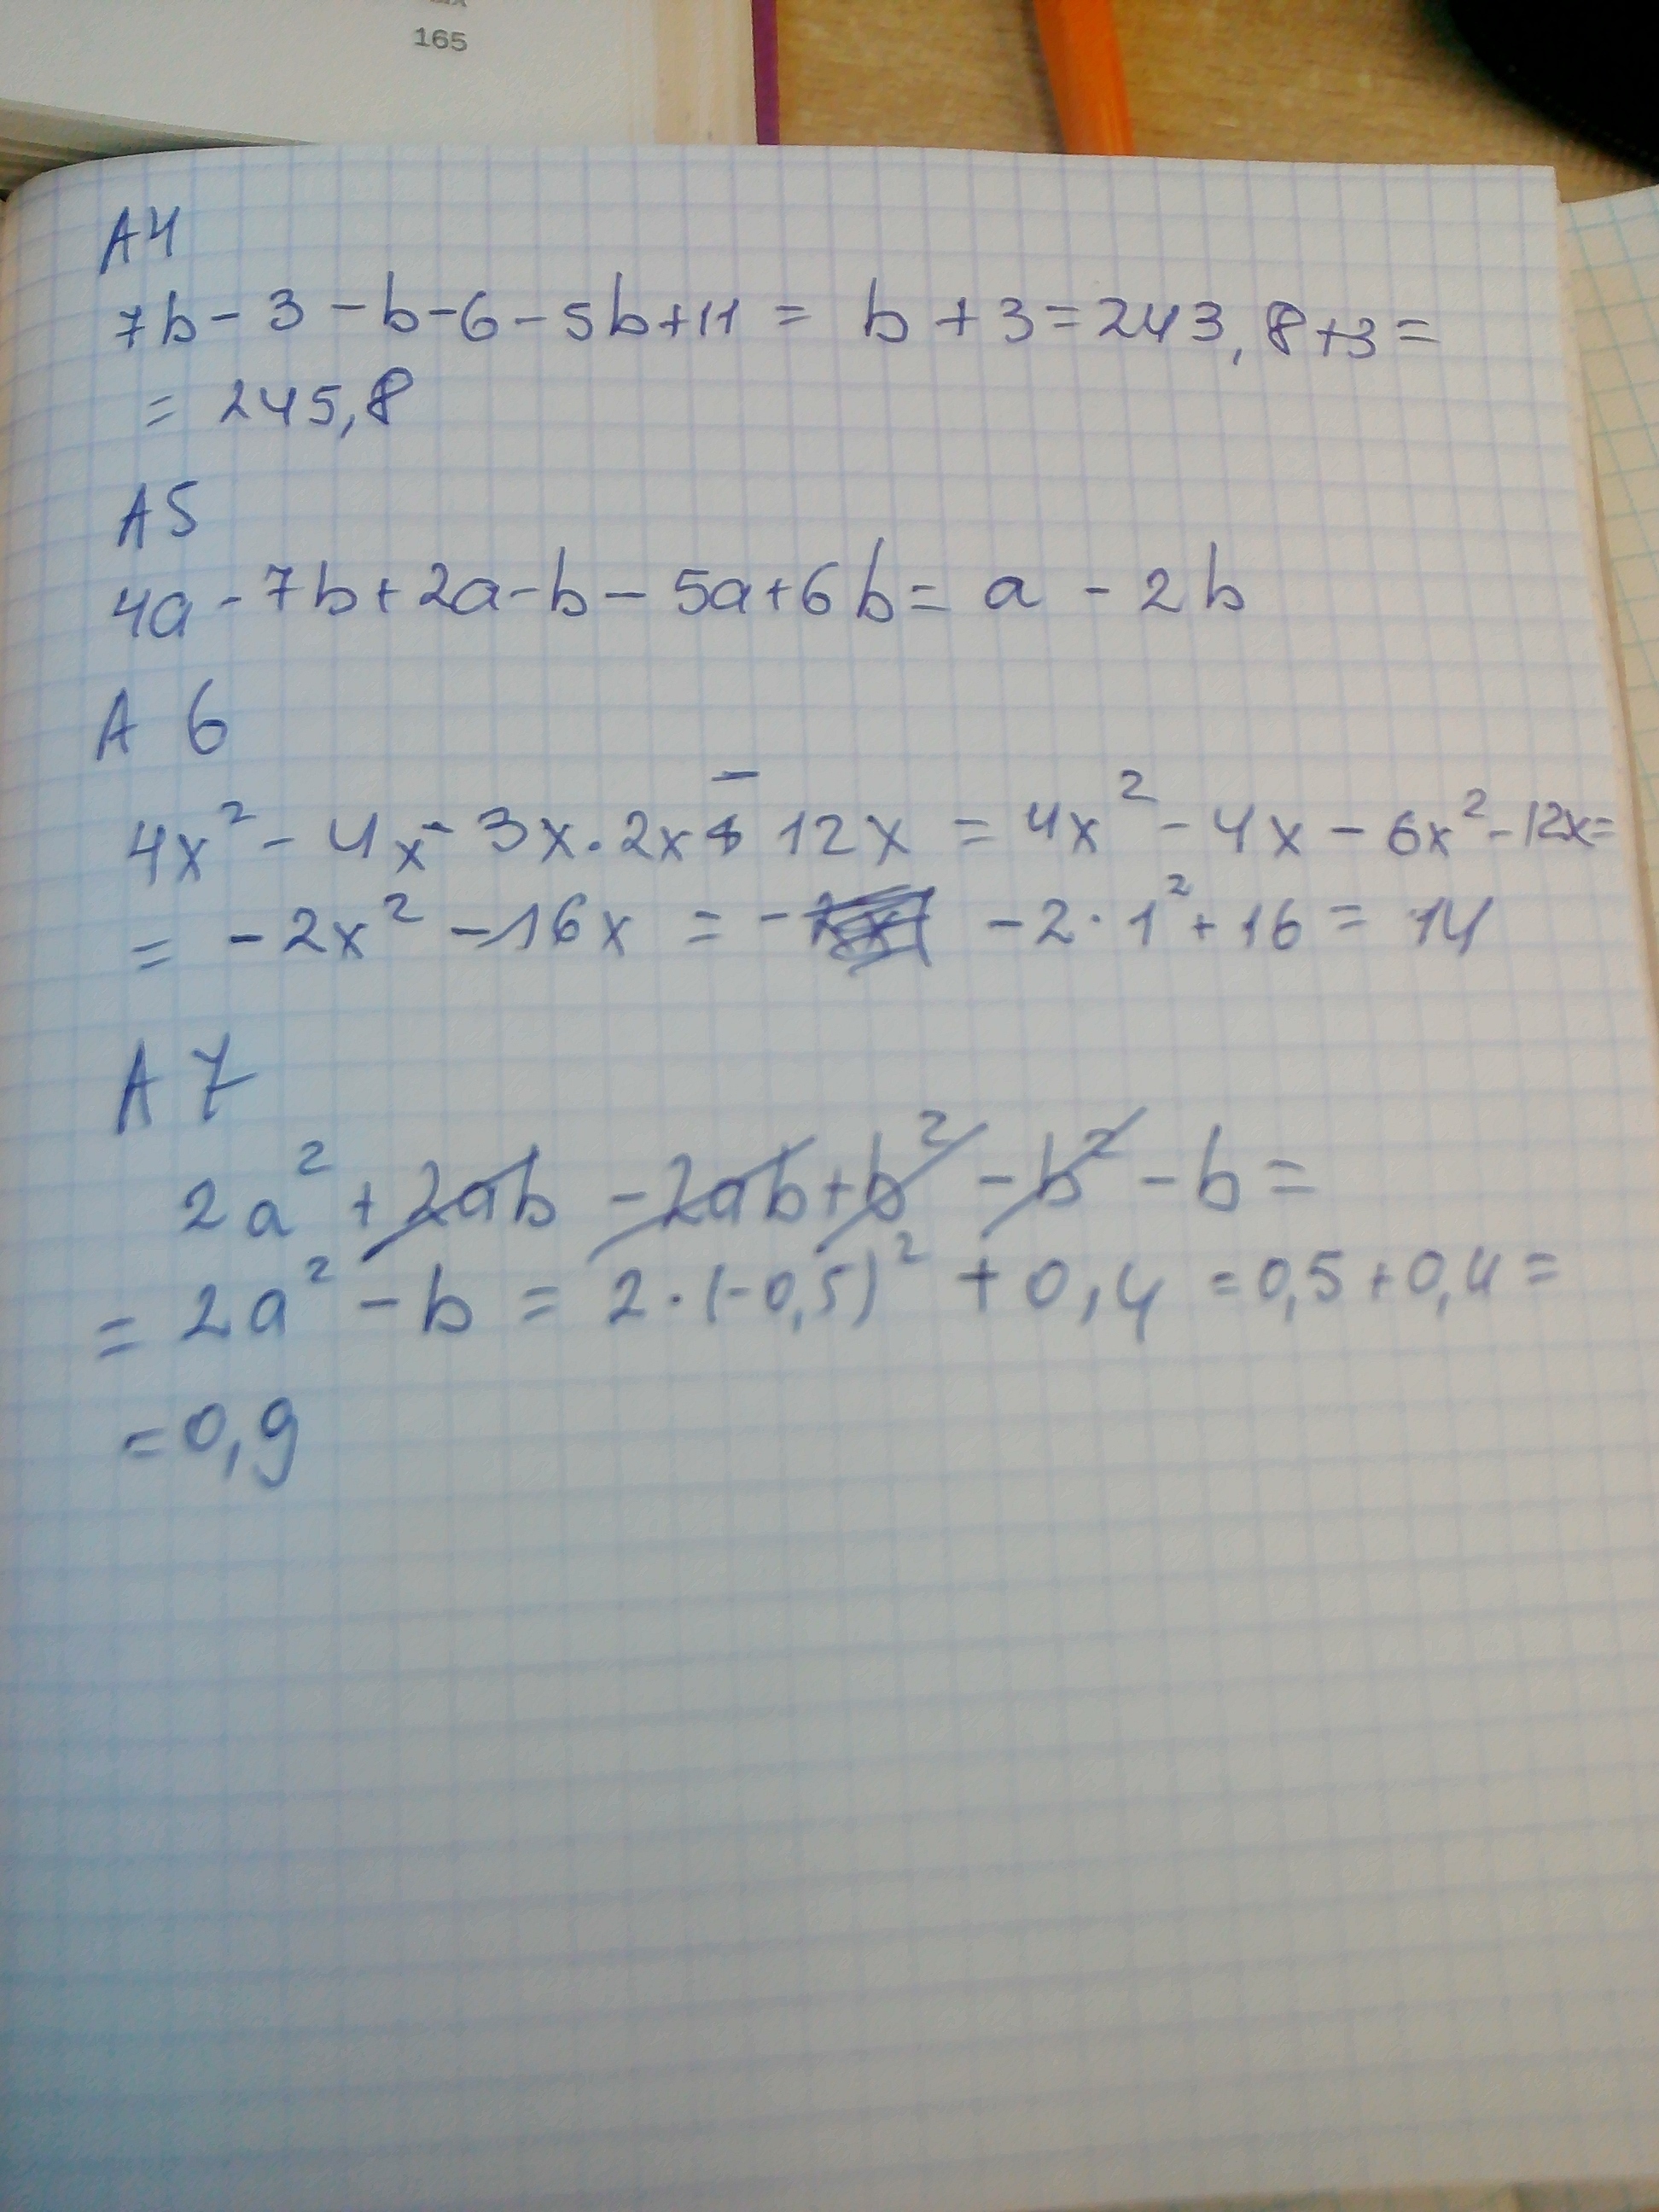 165
A4
7b - 3 - b - 6 - 5b + 11 = b + 3 = 243,8 + 3 =
= 245,8
A5
4a - 7b + 2a - b - 5a + 6b = a - 2b
A 6
4x² - 4x - 3x · 2x - 12x = 4x² - 4x - 6x² - 12x =
= -2x² - 16x = - -2 · 1² + 16 = 14
A 7
2a² + 2ab - 2ab + b² - b² - b =
= 2a² - b = 2 · (-0,5)² + 0,4 = 0,5 + 0,4 =
= 0,9